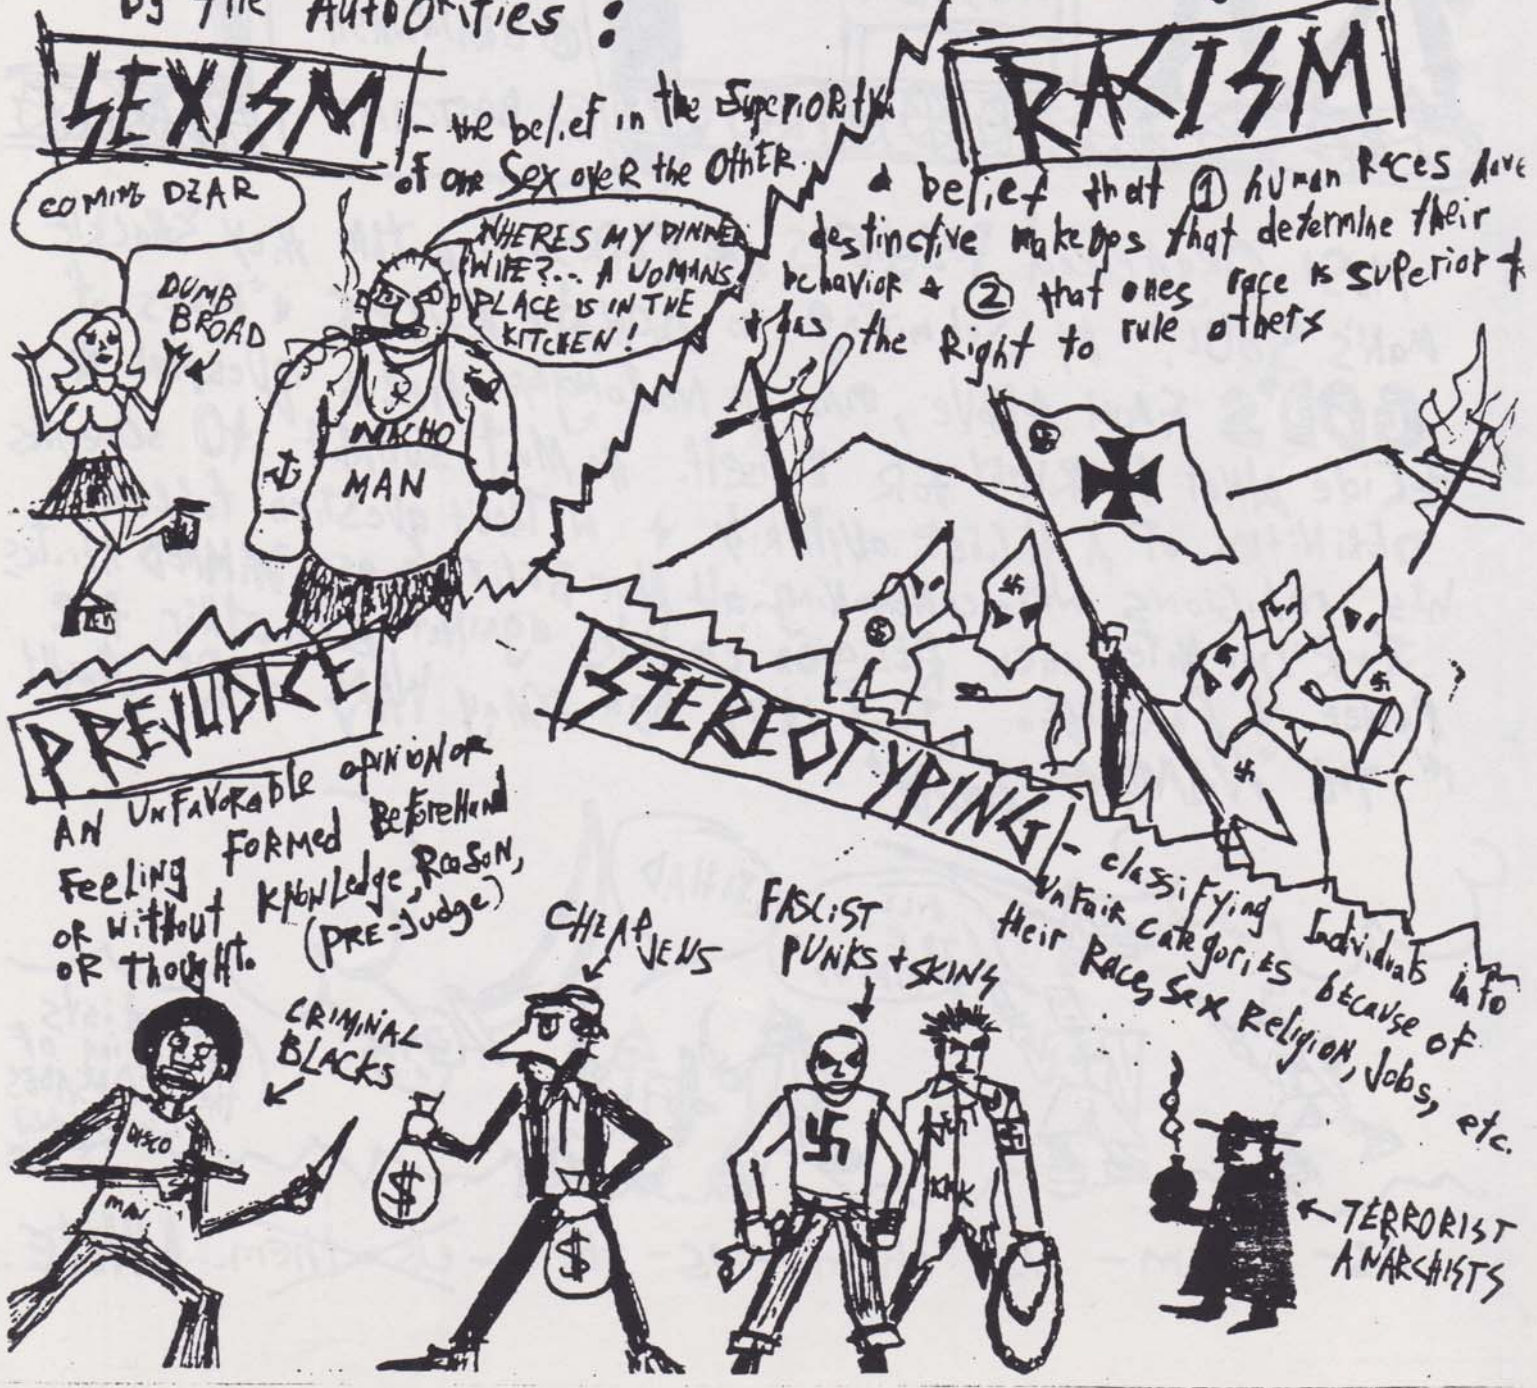 by the AuthOrities :
SEXISM
- the belief in the Superiority
of one Sex over the OthER.
COMING DEAR
DUMB
BROAD
WHERES MY DINNER
WIFE?... A WOMANS
PLACE IS IN THE
KITCHEN!
MACHO
MAN
RACISM
a belief that ① human Races have
destinctive makeups that determine their
behavior & ② that ones race is superior &
has the Right to rule others
PREJUDICE
AN UnFavorable opinion or
Feeling FORMED BeforeHand
OR without KNOWLedge, Reason,
OR thought. (PRE-judge)
STEREOTYPING
- classifying Individuals into
unfair categories because of
their Race, Sex Religion, Jobs, etc.
CRIMINAL
BLACKS
DISCO
MAN
CHEAP
JEWS
$
$
FASCIST
PUNKS + SKINS
KKK
TERRORIST
ANARCHISTS